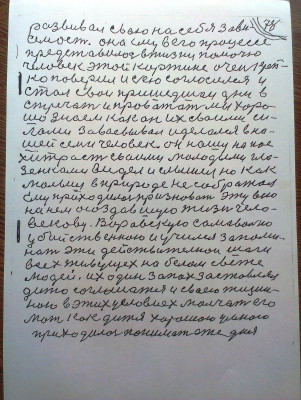 развивал свою на себя зави- 78
симост. она ему в его процессе
представилось в жизни помочю
человек этой картине очен креп-
ко поверил и с ею согласился и
стал свои пришедшии дни в
стричат и проватат мы хоро-
шо знаем как он их своими си-
лами завоевывал и делался в на-
шей семи человек. он нашу на нее
хитраст своими молодыми гла-
зенками видел и слышел но как
малыш в природе не соображал
ему приходилос признават эту выю
на нем создавшую жизн чело-
векову. Вправскую самоволно
убийственною и учился запоми-
нат эти действителнои шаги
всех живущех на белом свете
людей. их один запах заставлял
дитю соглашатся и своею жизн-
ною в этих условиех молчат его
мат как дитя хорошого умного
приходилос понимат оже для